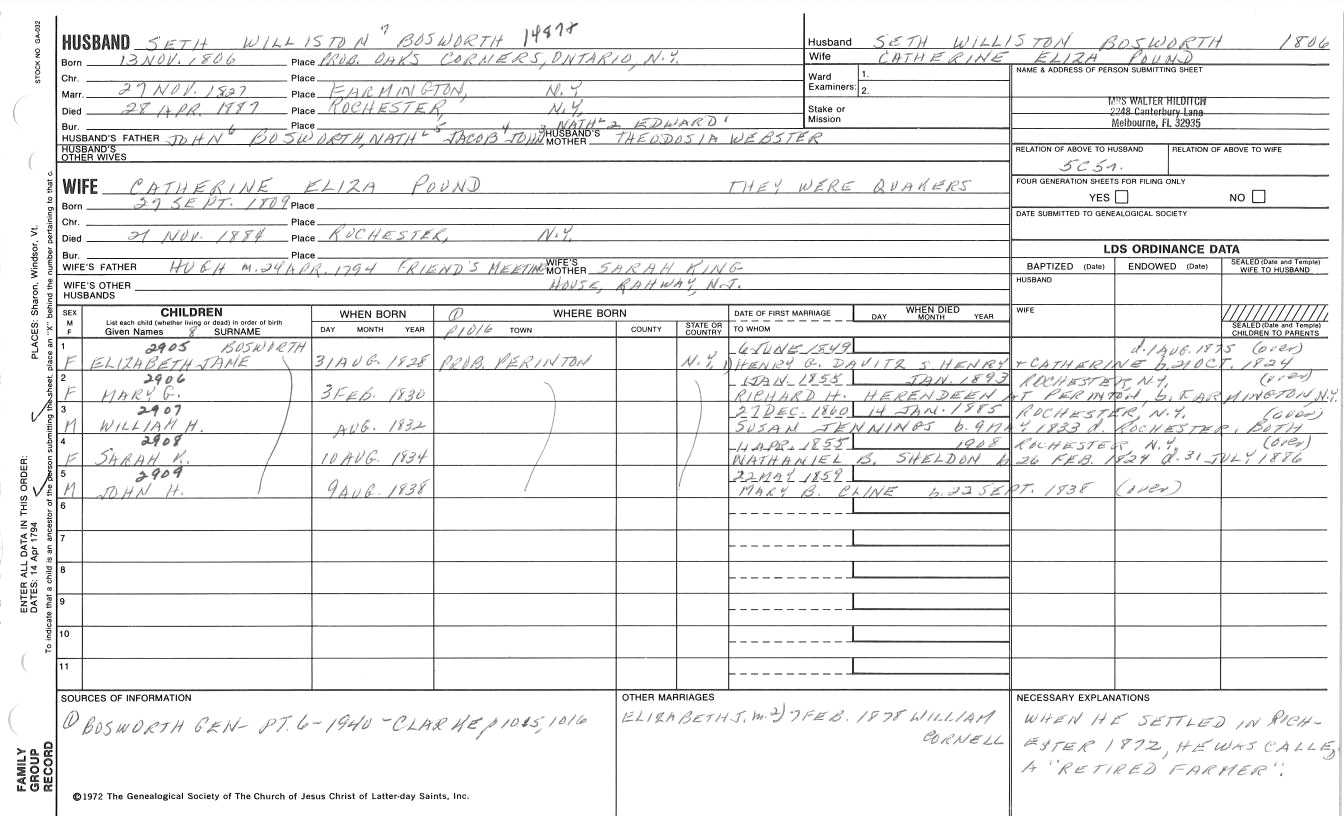 STOCK NO GA-032
PLACES: Sharon, Windsor, Vt.
ENTER ALL DATA IN THIS ORDER:
DATES: 14 Apr 1794
To indicate that a child is an ancestor of the person submitting the sheet, place an "X" behind the number pertaining to that c
FAMILY GROUP RECORD
HUSBAND SETH WILLISTON 7 BOSWORTH 14878
Born 13 NOV. 1806 Place PROB. OAKS CORNERS, ONTARIO, N.Y.
Chr. Place
Marr. 27 NOV. 1827 Place FARMINGTON, N.Y
Died 28 APR. 1887 Place ROCHESTER, N.Y.
Bur. Place
HUSBAND'S FATHER JOHN 6 BOSWORTH, NATHL 5 JACOB 4 JOHN 3 NATHL 2 EDWARD 1 HUSBAND'S MOTHER THEODOSIA WEBSTER
HUSBAND'S OTHER WIVES
WIFE CATHERINE ELIZA POUND THEY WERE QUAKERS
Born 27 SEPT. 1809 Place
Chr. Place
Died 21 NOV. 1884 Place ROCHESTER, N.Y.
Bur. Place
WIFE'S FATHER HUGH m. 24 APR. 1794 FRIEND'S MEETING WIFE'S MOTHER SARAH KING
HOUSE, RAHWAY, N.J.
WIFE'S OTHER HUSBANDS
Husband SETH WILLISTON BOSWORTH 1806
Wife CATHERINE ELIZA POUND
Ward Examiners: 1. 2.
Stake or Mission
NAME & ADDRESS OF PERSON SUBMITTING SHEET
MRS WALTER HILDITCH
2248 Canterbury Lane
Melbourne, FL 32935
RELATION OF ABOVE TO HUSBAND RELATION OF ABOVE TO WIFE
5C5r.
FOUR GENERATION SHEETS FOR FILING ONLY
YES NO
DATE SUBMITTED TO GENEALOGICAL SOCIETY
LDS ORDINANCE DATA
BAPTIZED (Date) ENDOWED (Date) SEALED (Date and Temple) WIFE TO HUSBAND
HUSBAND
WIFE
SEALED (Date and Temple) CHILDREN TO PARENTS
SEX M F
CHILDREN
List each child (whether living or dead) in order of birth
Given Names 8 SURNAME
WHEN BORN
DAY MONTH YEAR
① WHERE BORN
P1016 TOWN COUNTY STATE OR COUNTRY
DATE OF FIRST MARRIAGE
TO WHOM
WHEN DIED
DAY MONTH YEAR
1 2905 BOSWORTH 6 JUNE 1849 d. 1 AUG. 1875 (over)
F ELIZABETH JANE 31 AUG. 1828 PROB. PERINTON N.Y. 1) HENRY G. DAVITZ S HENRY + CATHERINE b. 21 OCT. 1824
2 2906 1 JAN. 1855 JAN. 1893 ROCHESTER, N.Y. (over)
F MARY G. 3 FEB. 1830 RICHARD H. HERENDEEN AT PERINTON, b. FARMINGTON N.Y.
3 2907 27 DEC. 1860 14 JAN. 1885 ROCHESTER, N.Y. (over)
M WILLIAM H. AUG. 1832 SUSAN JENNINGS b. 9 MAY 1833 d. ROCHESTER, BOTH
4 2908 4 APR. 1855 1908 ROCHESTER N.Y. (over)
F SARAH K. 10 AUG. 1834 NATHANIEL B. SHELDON b. 26 FEB. 1824 d. 31 JULY 1886
5 2909 22 MAY 1859
M JOHN H. 9 AUG. 1838 MARY B. CLINE b. 22 SEPT. 1838 (over)
6
7
8
9
10
11
SOURCES OF INFORMATION
① BOSWORTH GEN- PT. 6-1940-CLARKE p 1015, 1016
OTHER MARRIAGES
ELIZABETH J. m. 2) 7 FEB. 1878 WILLIAM
CORNELL
NECESSARY EXPLANATIONS
WHEN HE SETTLED IN RICH-
ESTER 1872, HE WAS CALLED
A "RETIRED FARMER".
©1972 The Genealogical Society of The Church of Jesus Christ of Latter-day Saints, Inc.